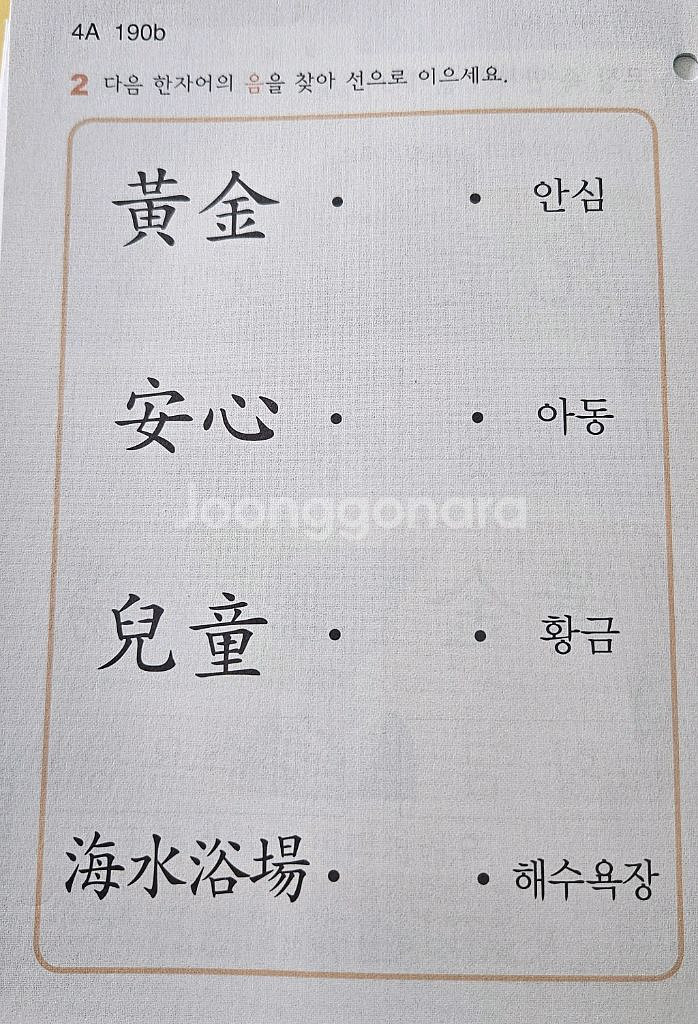 4A 190b
2 다음 한자어의 음을 찾아 선으로 이으세요.
黃金 • • 안심
安心 • • 아동
Joonggonara
兒童 • • 황금
海水浴場 • • 해수욕장